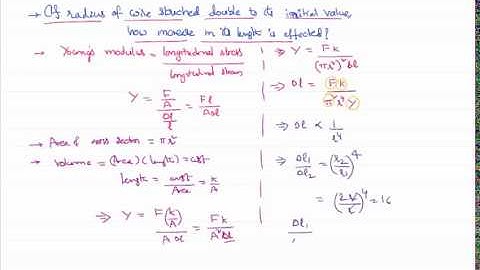 → If radius of wire streched double to its initial value,
how increase in its length is effected?
→ Young's modulus = longitudinal stress / longitudinal strain
Y = (F/A) / (Δl/l) = Fl / AΔl
→ Area of cross section = πr²
→ Volume = (Area)(length) = const
length = const / Area = k / A
⇒ Y = F(k/A) / AΔl = Fk / A²Δl
⇒ Y = Fk / (πr²)²Δl
⇒ Δl = Fk / π²r⁴Y
⇒ Δl ∝ 1/r⁴
⇒ Δl₁/Δl₂ = (r₂/r₁)⁴
= (2r/r)⁴ = 16
Δl₁